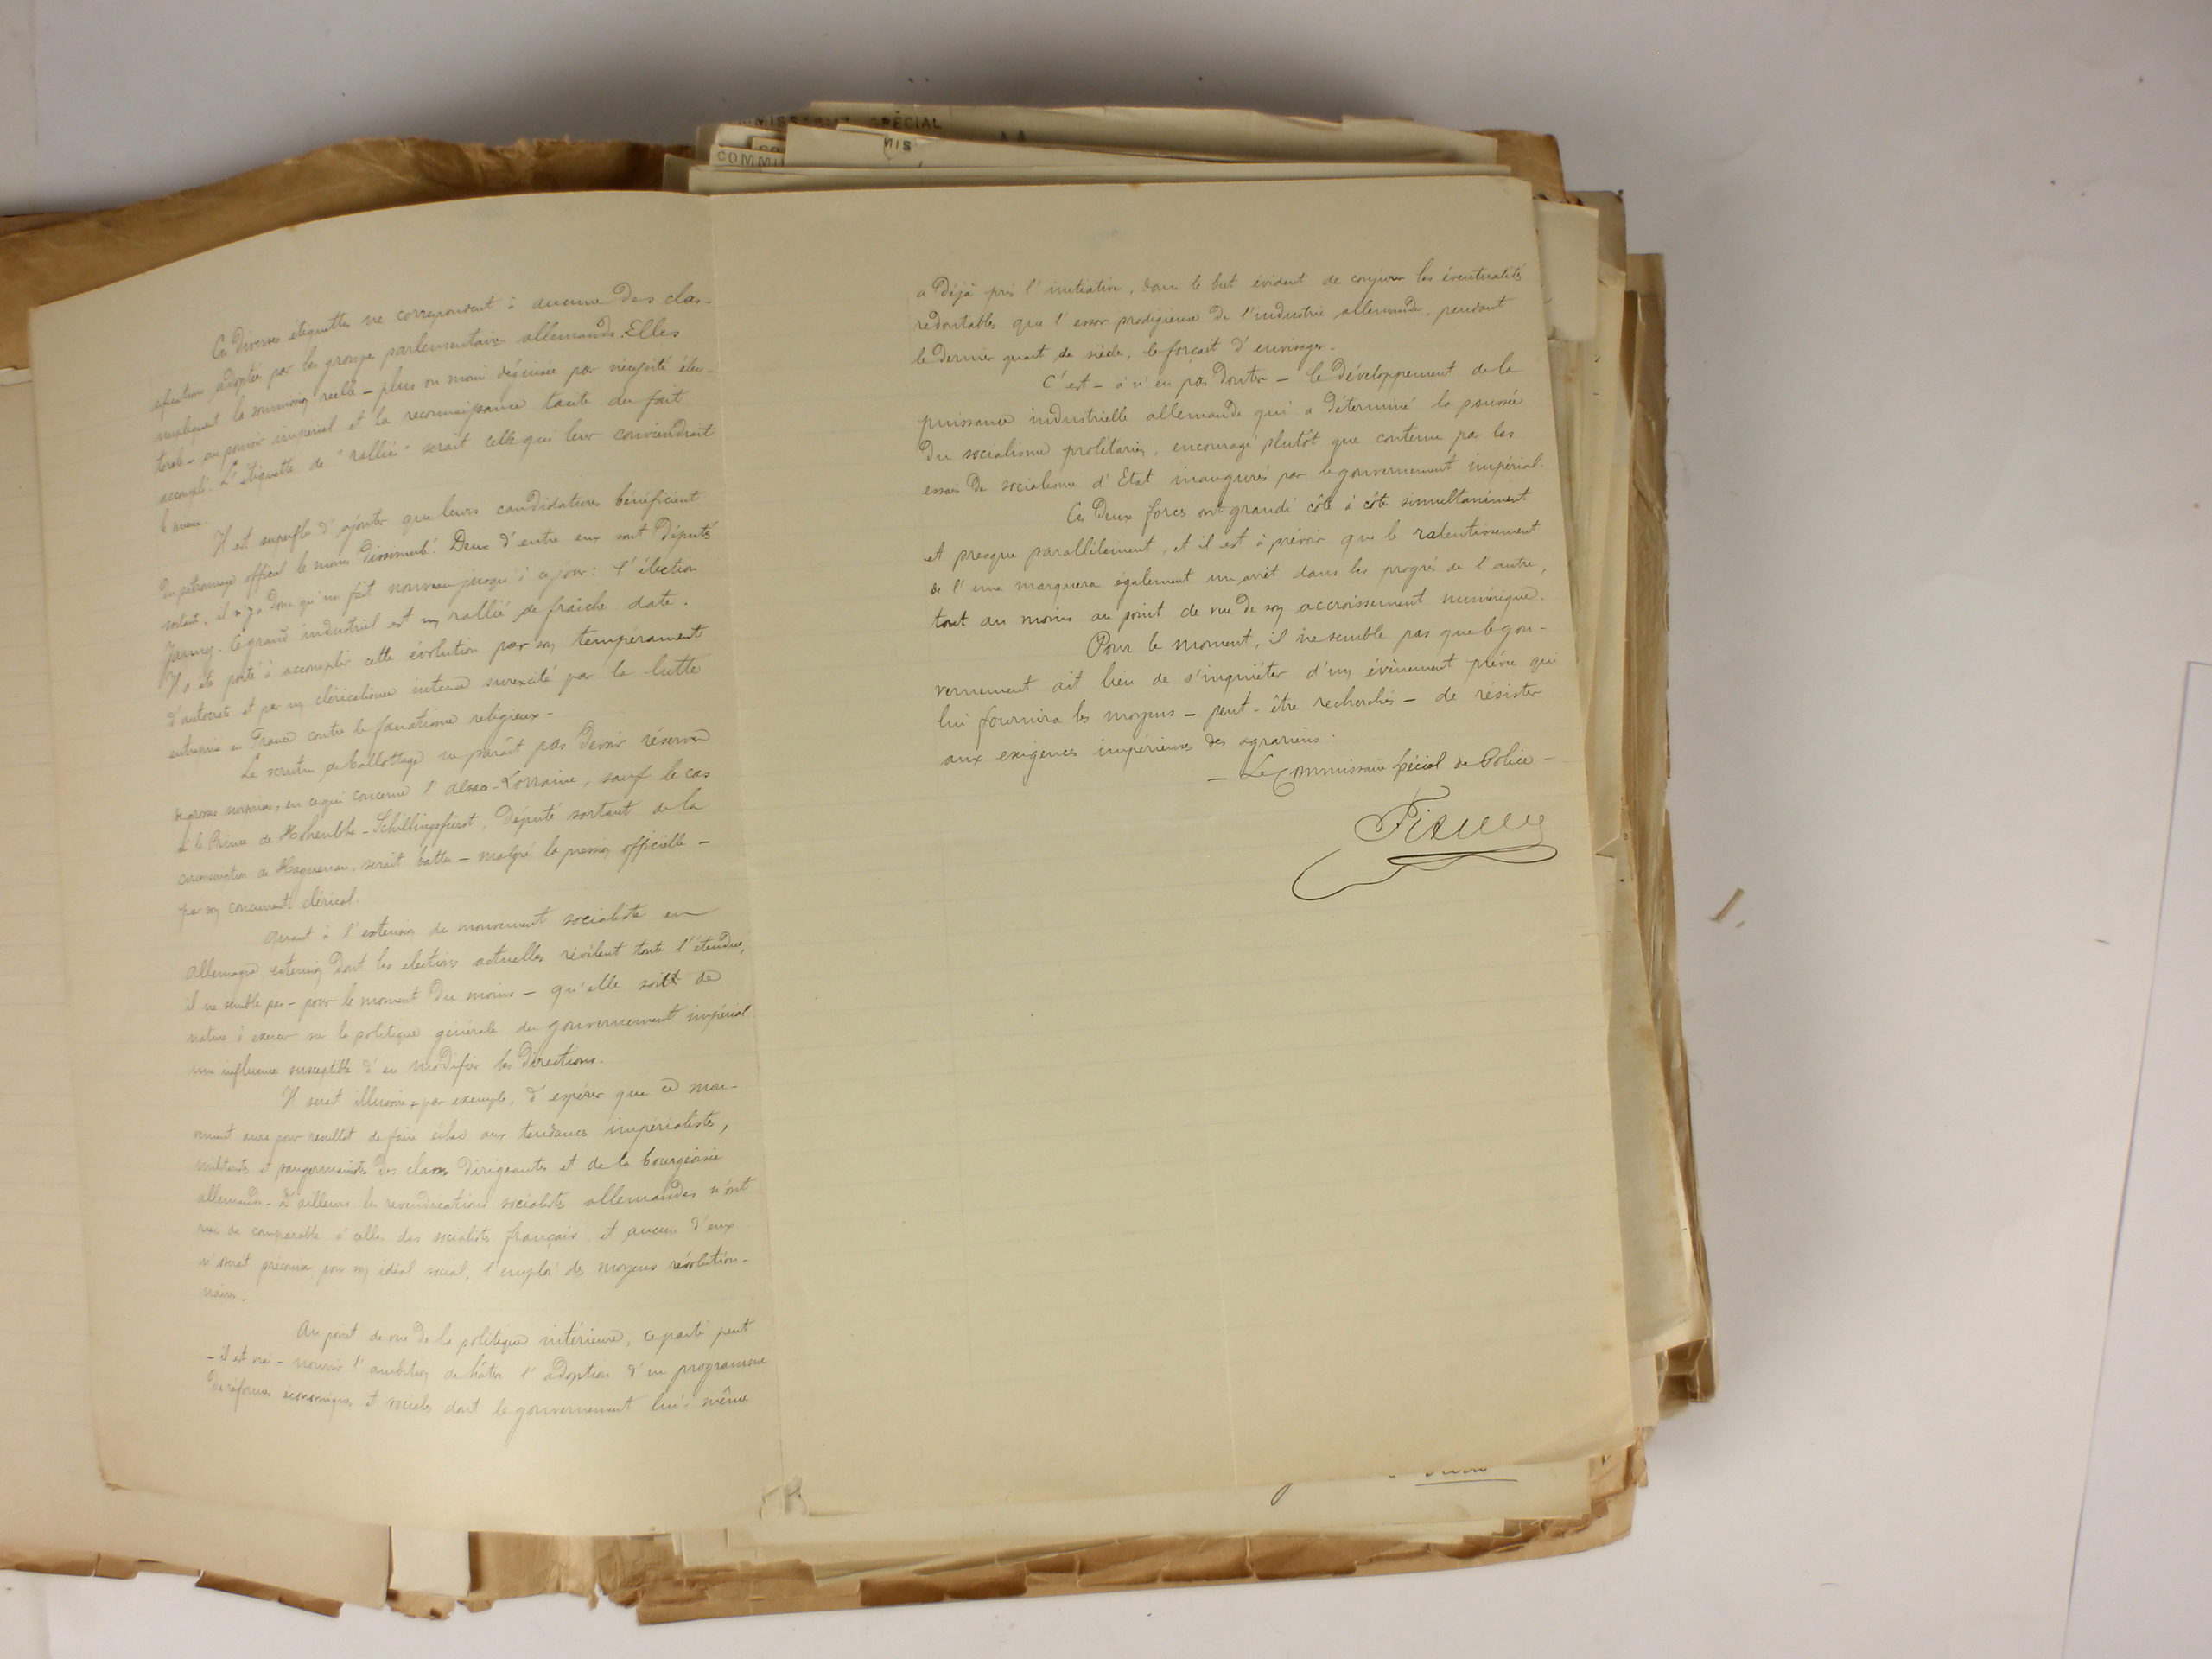 MMISSARIAT SPÉCIAL
CO
MIS
COMMI
Ces diverses étiquettes ne correspondent à aucune des clas-
sifications adoptées par les groupes parlementaires allemands. Elles
impliquent la soumission réelle – plus ou moins déguisée par nécessité élec-
torale – au pouvoir impérial et la reconnaissance tacite du fait
accompli. L'étiquette de "ralliés" serait celle qui leur conviendrait
le mieux.
Il est superflu d'ajouter que leurs candidatures bénéficient
du patronage officiel le moins dissimulé. Deux d'entre eux sont députés
sortants, il n'y a donc qu'un fait nouveau jusqu'à ce jour : l'élection
Ce grand industriel est un rallié de fraîche date.
Il a été porté à accomplir cette évolution par son tempérament
d'autocrate et par un cléricalisme intense surexcité par la lutte
entreprise en France contre le fanatisme religieux –
Le scrutin de ballottage ne paraît pas devoir réserver
de grosses surprises, en ce qui concerne l'Alsace-Lorraine, sauf le cas
où le Prince de Hohenlohe-Schillingsfürst, député sortant de la
circonscription de Haguenau, serait battu – malgré la pression officielle –
par son concurrent clérical.
Quant à l'extension du mouvement socialiste en
Allemagne extension dont les élections actuelles révèlent toute l'étendue,
il ne semble pas – pour le moment du moins – qu'elle soit de
nature à exercer sur la politique générale du gouvernement impérial
une influence susceptible d'en modifier les directions.
Il serait illusoire, par exemple, d'espérer que ce mou-
vement aura pour résultat de faire échec aux tendances impérialistes,
militaristes et pangermanistes des classes dirigeantes et de la bourgeoisie
allemande. D'ailleurs les revendications socialistes allemandes n'ont
rien de comparable à celles des socialistes français et aucun d'eux
n'oserait préconiser pour son idéal social, l'emploi des moyens révolution-
naires.
Au point de vue de la politique intérieure, ce parti peut
– il est vrai – nourrir l'ambition de hâter l'adoption d'un programme
de réformes économiques et sociales dont le gouvernement lui-même
a déjà pris l'initiative, dans le but évident de conjurer les éventualités
redoutables que l'essor prodigieux de l'industrie allemande, pendant
le dernier quart de siècle, le forçait d'envisager.
C'est – à n'en pas douter – le développement de la
puissance industrielle allemande qui a déterminé la poussée
du socialisme prolétarien, encouragé plutôt que contenu par les
essais de socialisme d'Etat inaugurés par le gouvernement impérial.
Ces deux forces ont grandi côte à côte simultanément
et presque parallèlement, et il est à prévoir que le ralentissement
de l'une marquera également un arrêt dans les progrès de l'autre,
tout au moins au point de vue de son accroissement numérique.
Pour le moment, il ne semble pas que le gou-
vernement ait lieu de s'inquiéter d'un événement prévu qui
lui fournira les moyens – peut-être recherchés – de résister
aux exigences impérieuses des agrariens.
– Le Commissaire spécial de Police –